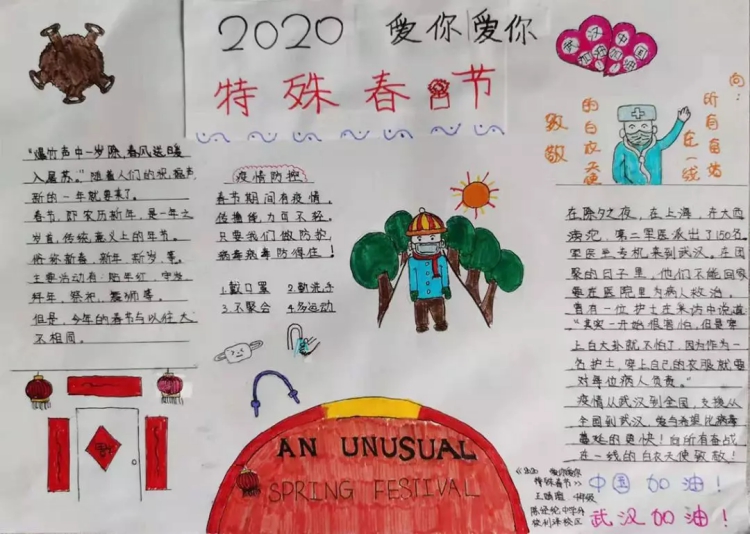 2020 爱你爱你
特殊春节
武汉中国
加油
向:
所有奋战
在一线
的白衣天使
致敬
"爆竹声中一岁除,春风送暖
入屠苏。"随着人们的祝福声
新的一年就要来了。
春节,即农历新年,是一年之
岁首,传统意义上的年节。
俗称新春、新年、新岁、等。
主要活动有:贴年红、守岁
拜年、祭祀、舞狮等。
但是,今年的春节与以往大
不相同。
疫情防护
春节期间有疫情,
传播能力可不轻。
只要我们做防护,
病毒病毒防得住!
1.戴口罩 2.勤洗手
3.不聚会 4.多运动
在除夕之夜,在上海,在大西
南沱,第二军医派出了150名
军医坐专机来到武汉。在团
聚的日子里,他们不能回家
要在医院里为病人救治。
曾有一位护士在采访中说道
"其实一开始很害怕,但是穿
上白大卦就不怕了,因为作为一
名护士,穿上自己的衣服就要
对每位病人负责。"
疫情从武汉到全国,支援从
全国到武汉,爱与希望比病毒
蔓延的更快!向所有奋战
在一线的白衣天使致敬!
AN UNUSUAL
SPRING FESTIVAL
《2020 爱你爱你
特殊春节》
陈经纶中学
校区
中国加油!
武汉加油!